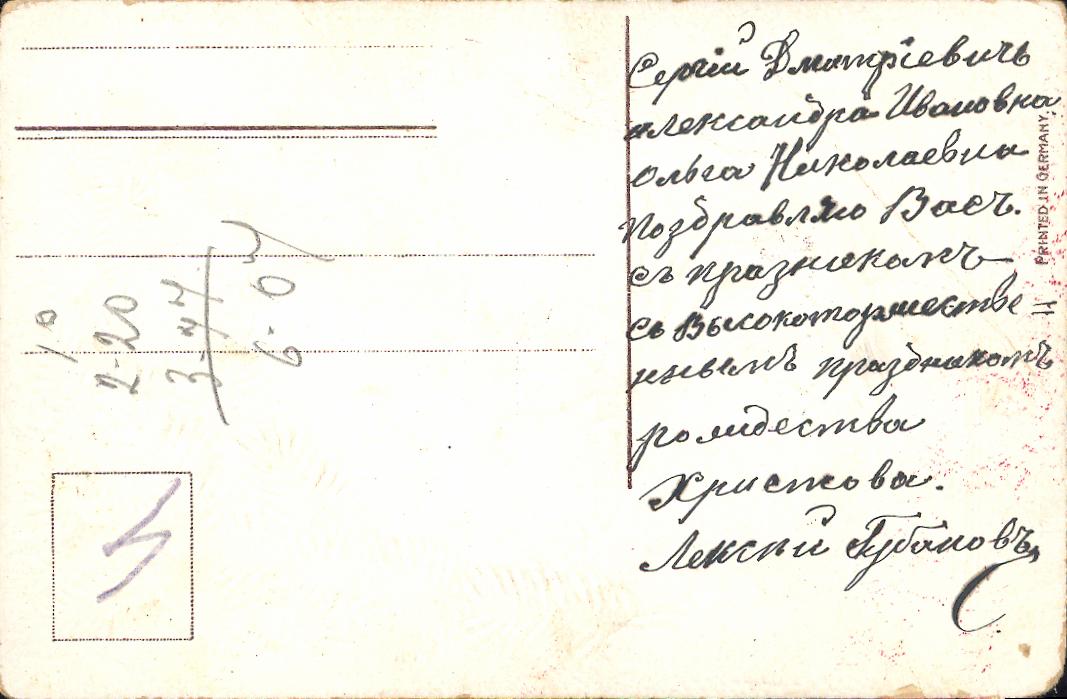 Сергій Дмитріевичъ
Александра Ивановна
Ольга Николаевна
Поздравляю Васъ.
съ празникомъ
съ Высокоторжестве
ннымъ праздникомъ
рождества
Христова.
Лексѣй Губановъ
PRINTED IN GERMANY.
10
2-20
3-44
6-04